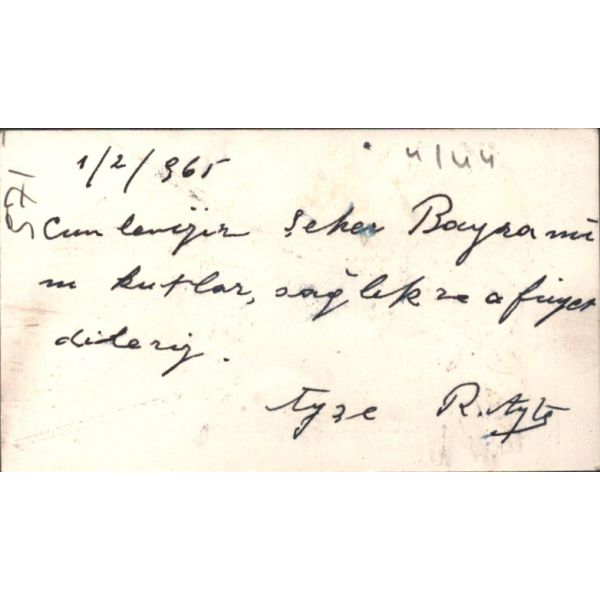 1/2/965
4/44
Cümlenizin Şeker Bayramı
nı kutlar, sağlık ve afiyet
dileriz.
R. Ayts